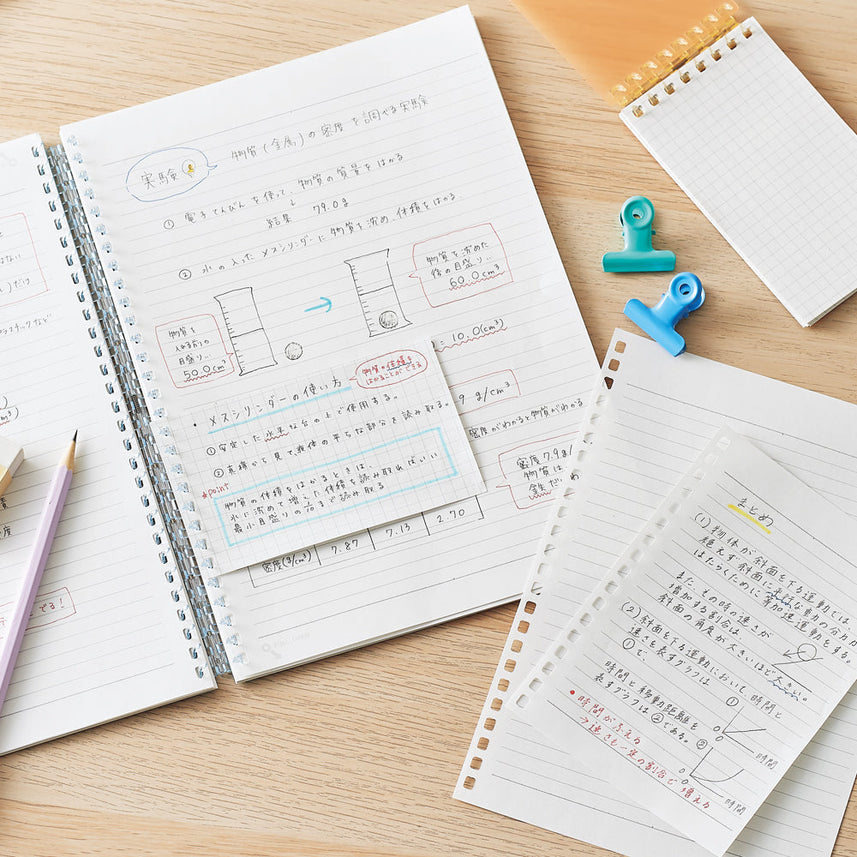 はない
)だけ
プラスチックなど
でる!
実験
物質(金属)の密度を調べる実験
① 電子てんびんを使って、物質の質量をはかる
↓
結果 79.0g
② 水の入ったメスシリンダーに物質を沈め、体積をはかる。
物質を
入れる前の
目盛り…
50.0cm³
→
物質を沈めた
後の目盛り…
60.0cm³
= 10.0(cm³)
9 g/cm³
密度がわかると物質がわかる
密度7.9g/
物質は
鉄だい
密度(g/cm³) 7.87 7.13 2.70
・メスシリンダーの使い方
物質の体積を
はかることができる
①安定した水平な台の上で使用する。
②真横から見て液体の平らな部分を読み取る。
*point
物質の体積をはかるときは、
水に沈めて増した体積を読み取ればいい
最小目盛りの まで読み取る
まとめ
(1)物体が斜面を下る運動では、
絶えず斜面に平行な重力の分力が
はたらくために等加速運動をする。
また、その時の速さが
増加する割合は
斜面の角度が大きいほど大きい。
(2)斜面を下る運動において、時間と
速さを表すグラフは①
①で、
時間と移動距離を
表すグラフは②である。
①
0
0
時間
②
0
0
時間
・時間がふえる
→速さも一定の割合で増える